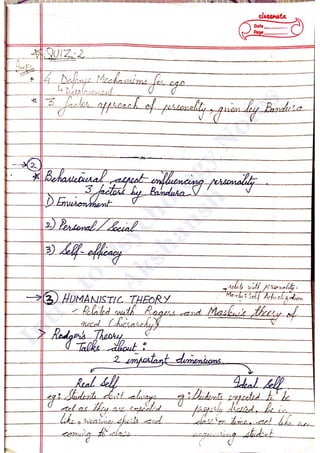 classmate
Date
Page
* QUIZ-2
4 Defense Mechanisms for ego
↳ Displacement
* 3 factor approach of personality, given by Bandura
→ ②
* Behavioural aspect influencing personality.
3 factors by Bandura
1) Environment
2) Personal / Social
3) Self-efficacy
→ relate with personality.
→ ③ HUMANISTIC THEORY
- Related with Rogers and Maslow's theory of
need (hierarchy)
> Rodger's Theory
Talks about:
2 important dimensions.
Real Self
Ideal Self
eg: Students don't always
act as they are expected
like, wearing shorts and
coming to class
eg: Students expected to be
properly dressed, be in
class on time, act like an
student